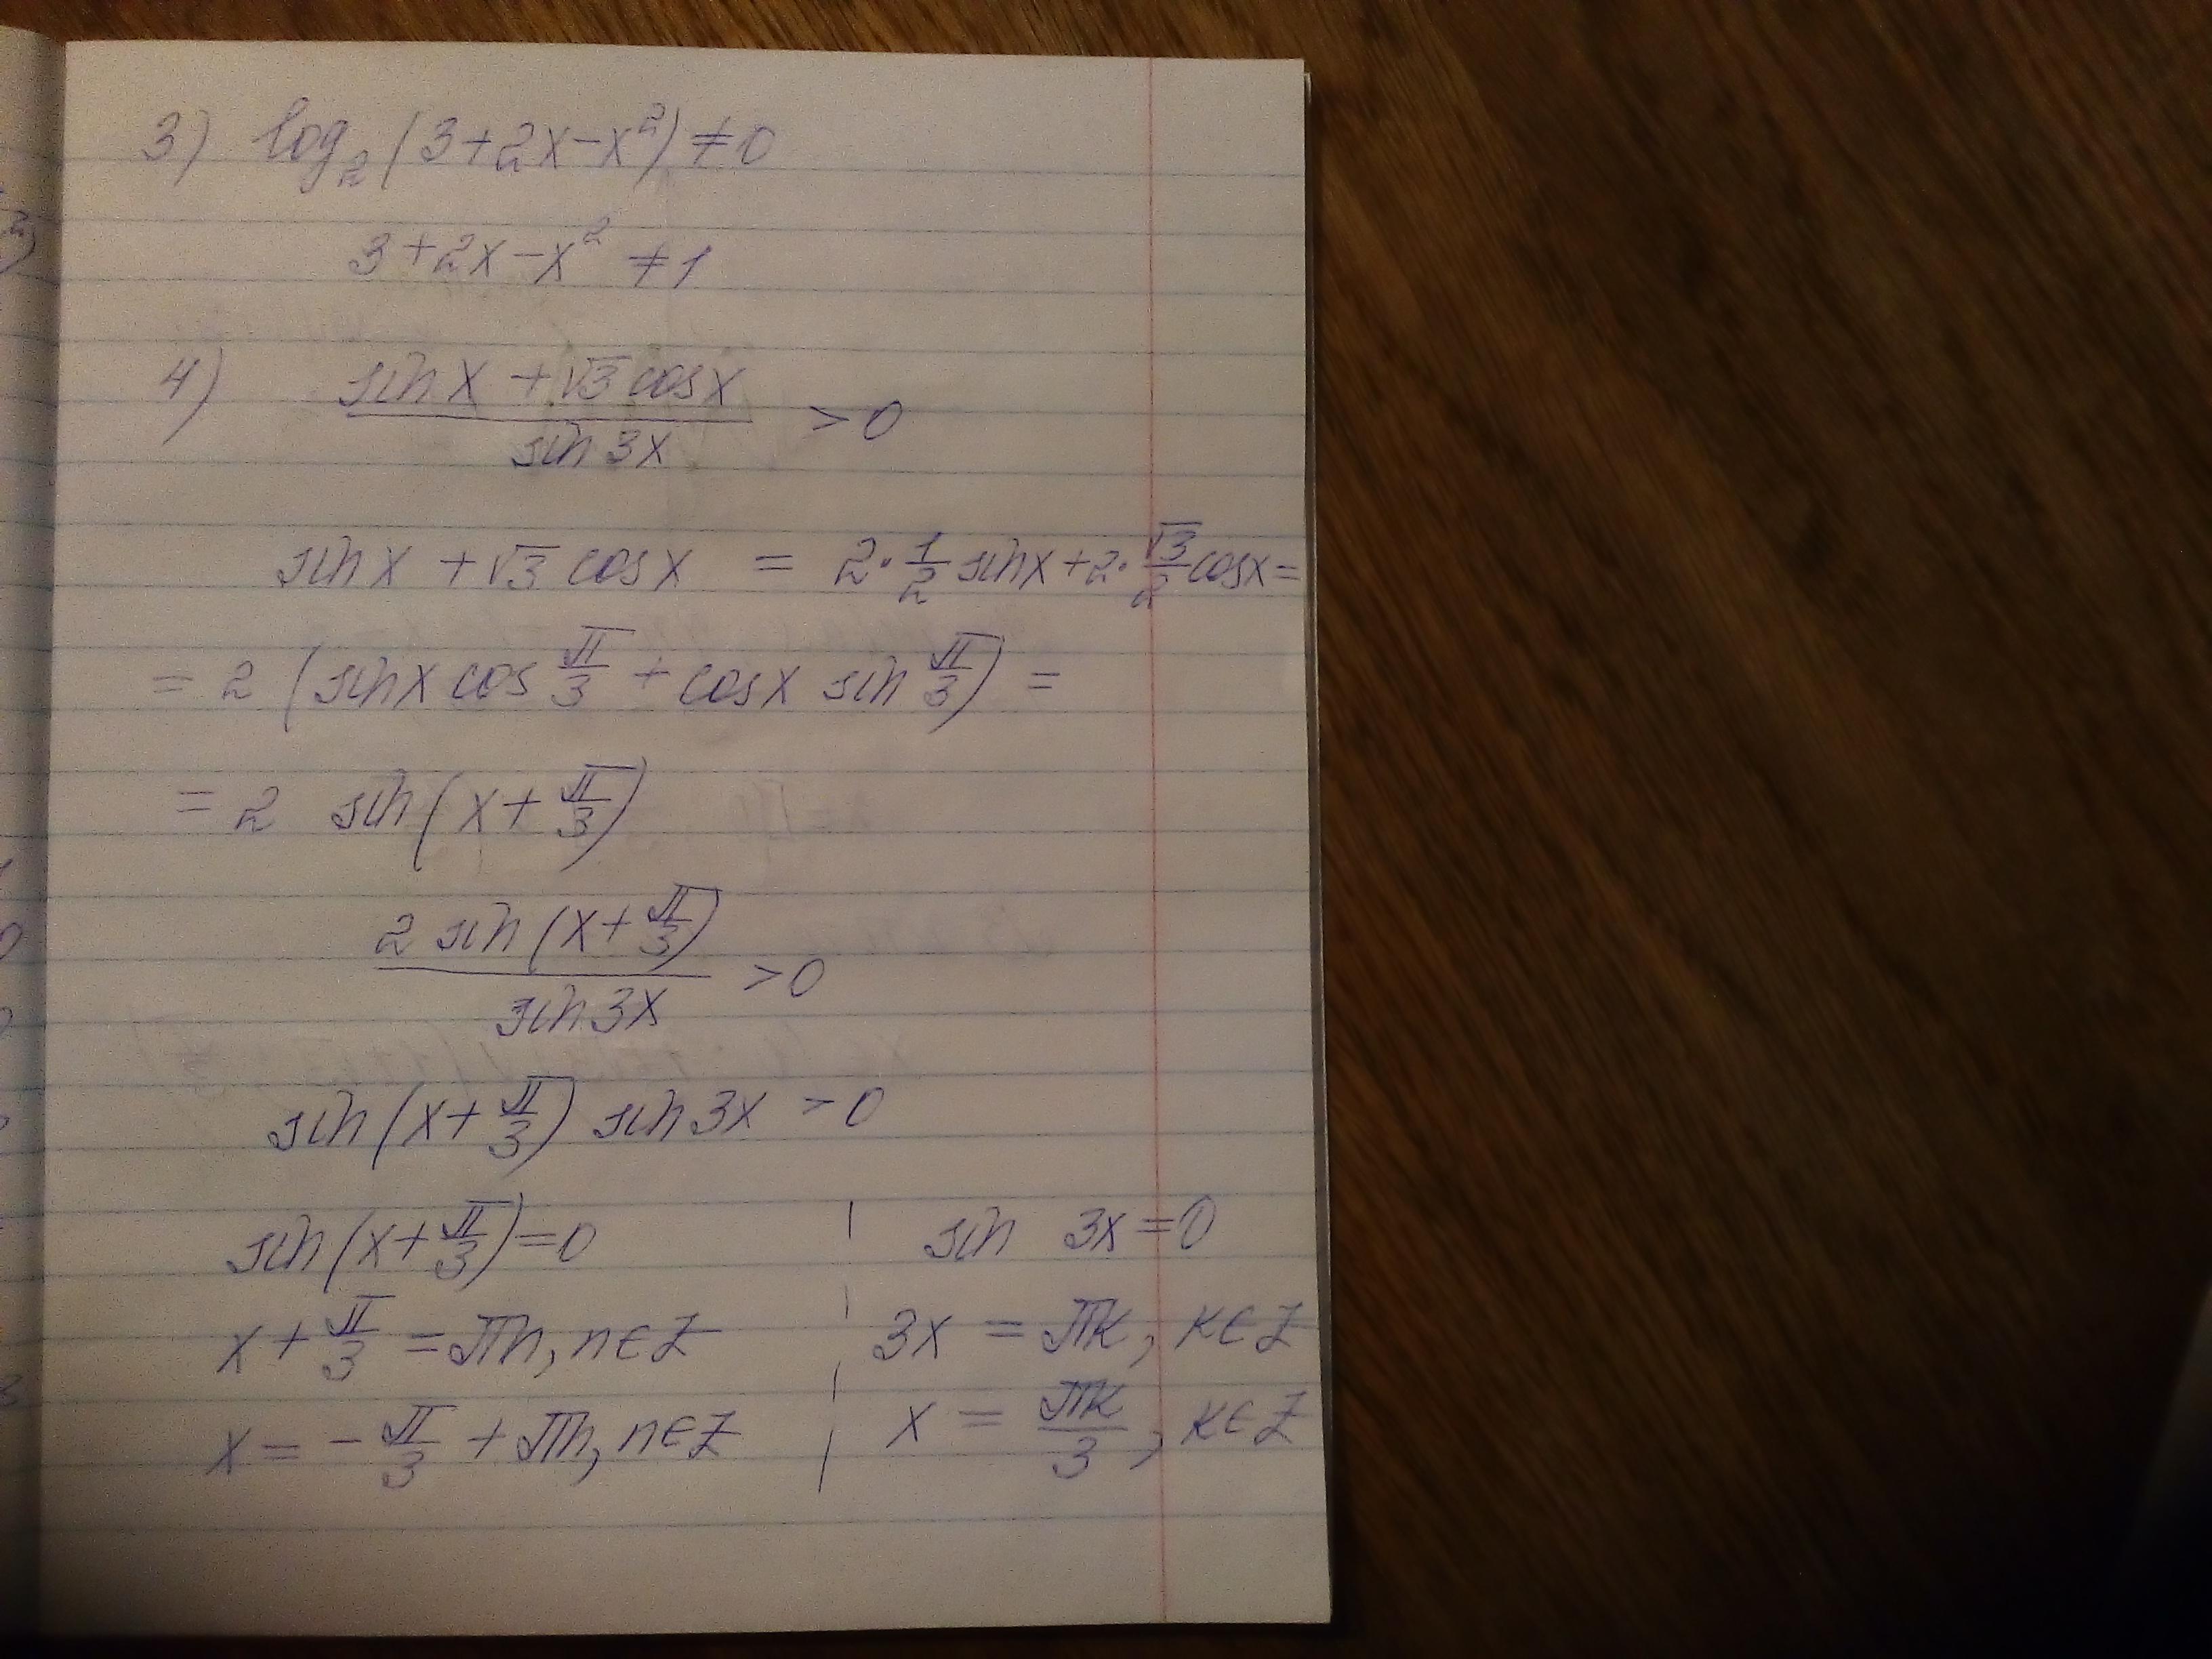 3) log₂(3+2x-x²)≠0
3+2x-x² ≠1
4) (sin x + √3 cos x)/(sin 3x) > 0
sin x + √3 cos x = 2·1/2 sin x + 2·√3/2 cos x =
= 2 (sin x cos π/3 + cos x sin π/3) =
= 2 sin(x + π/3)
(2 sin (x + π/3))/(sin 3x) > 0
sin(x + π/3) sin 3x > 0
sin(x + π/3) = 0 | sin 3x = 0
x + π/3 = πn, n∈Z | 3x = πk, k∈Z
x = - π/3 + πn, n∈Z | x = πk/3, k∈Z